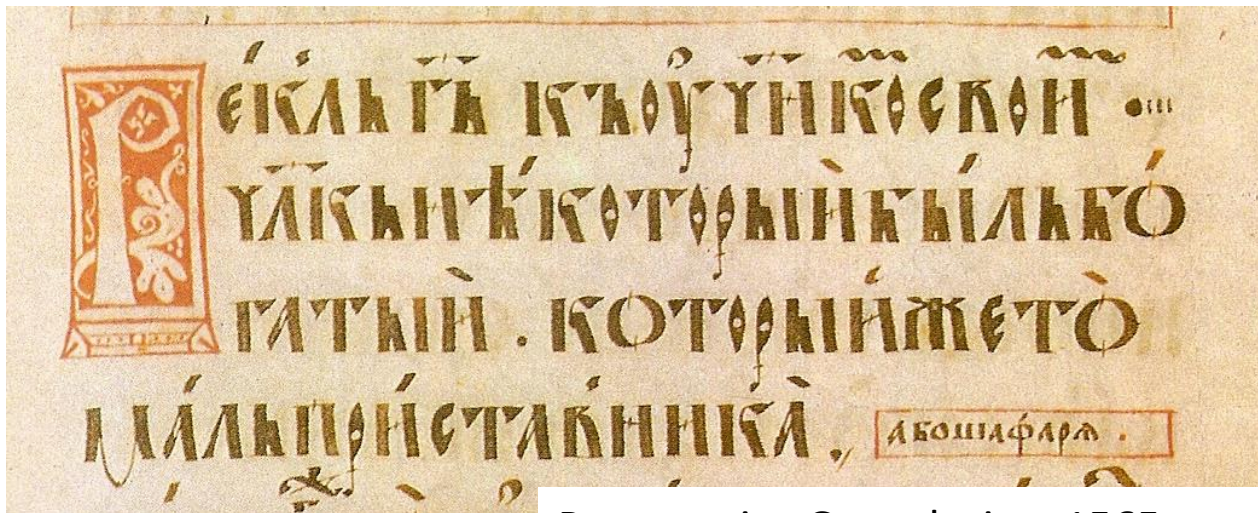 Ре́кль г҃ь къоучн҃коⷨ своиⷨ ·
чл҃кьнѣ́которыйбы́льбо́
гатый . которы́ижето̀
ма́льпри́ставника̀ ·
або шафарѧ .